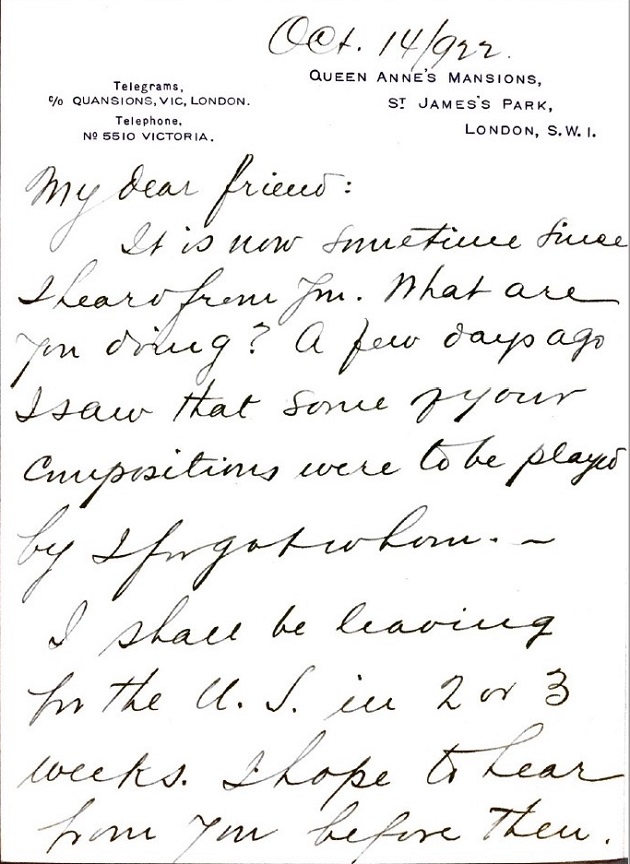 Oct. 14/922.
Telegrams,
c/o QUANSIONS, VIC, LONDON.
Telephone,
Nº 5510 VICTORIA.
QUEEN ANNE'S MANSIONS,
ST JAMES'S PARK,
LONDON, S.W.1.
My dear friend:
It is now sometime since
I heard from you. What are
you doing? A few days ago
I saw that some of your
compositions were to be played
by I forgot whom. –
I shall be leaving
for the U. S. in 2 or 3
weeks. I hope to hear
from you before then.